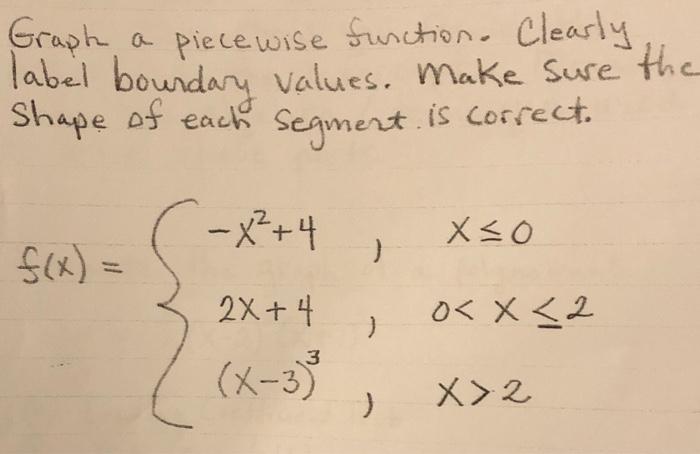 Graph a piecewise function. Clearly
label boundary values. Make Sure the
Shape of each Segment is correct.
-x²+4 , x≤0
f(x) = { 2x+4 , 0< x ≤2
(x-3)³ , x>2